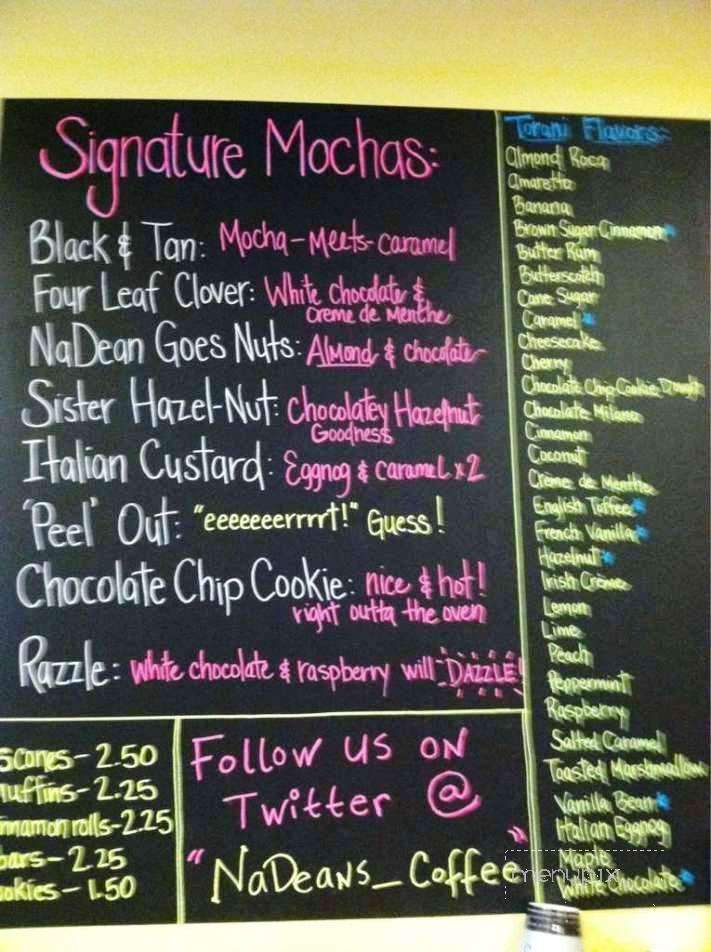 Signature Mochas:
Black & Tan: Mocha-Meets-Caramel
Four Leaf Clover: White Chocolate &
Creme de Menthe
NaDean Goes Nuts: Almond & chocolate
Sister Hazel-Nut: Chocolatey Hazelnut
Goodness
Italian Custard: Eggnog & caramel x2
'Peel' Out: "eeeeeeerrrrt!" Guess!
Chocolate Chip Cookie: nice & hot!
right outta the oven
Razzle: white chocolate & raspberry will DAZZLE!
scones - 2.50
muffins - 2.25
innamon rolls - 2.25
bars - 2.25
ookies - 1.50
Follow us on
Twitter @
"NaDeans_Coffee"
Torani Flavors:
Almond Roca
Amaretto
Banana
Brown Sugar Cinnamon*
Butter Rum
Butterscotch
Cane Sugar
Caramel*
Cheesecake
Cherry
Chocolate Chip Cookie Dough
Chocolate Milano
Cinnamon
Coconut
Creme de Menthe
English Toffee*
French Vanilla*
Hazelnut*
Irish Creme
Lemon
Lime
Peach
Peppermint
Raspberry
Salted Caramel
Toasted Marshmallow
Vanilla Bean*
Italian Eggnog
Maple
White Chocolate*
menupix